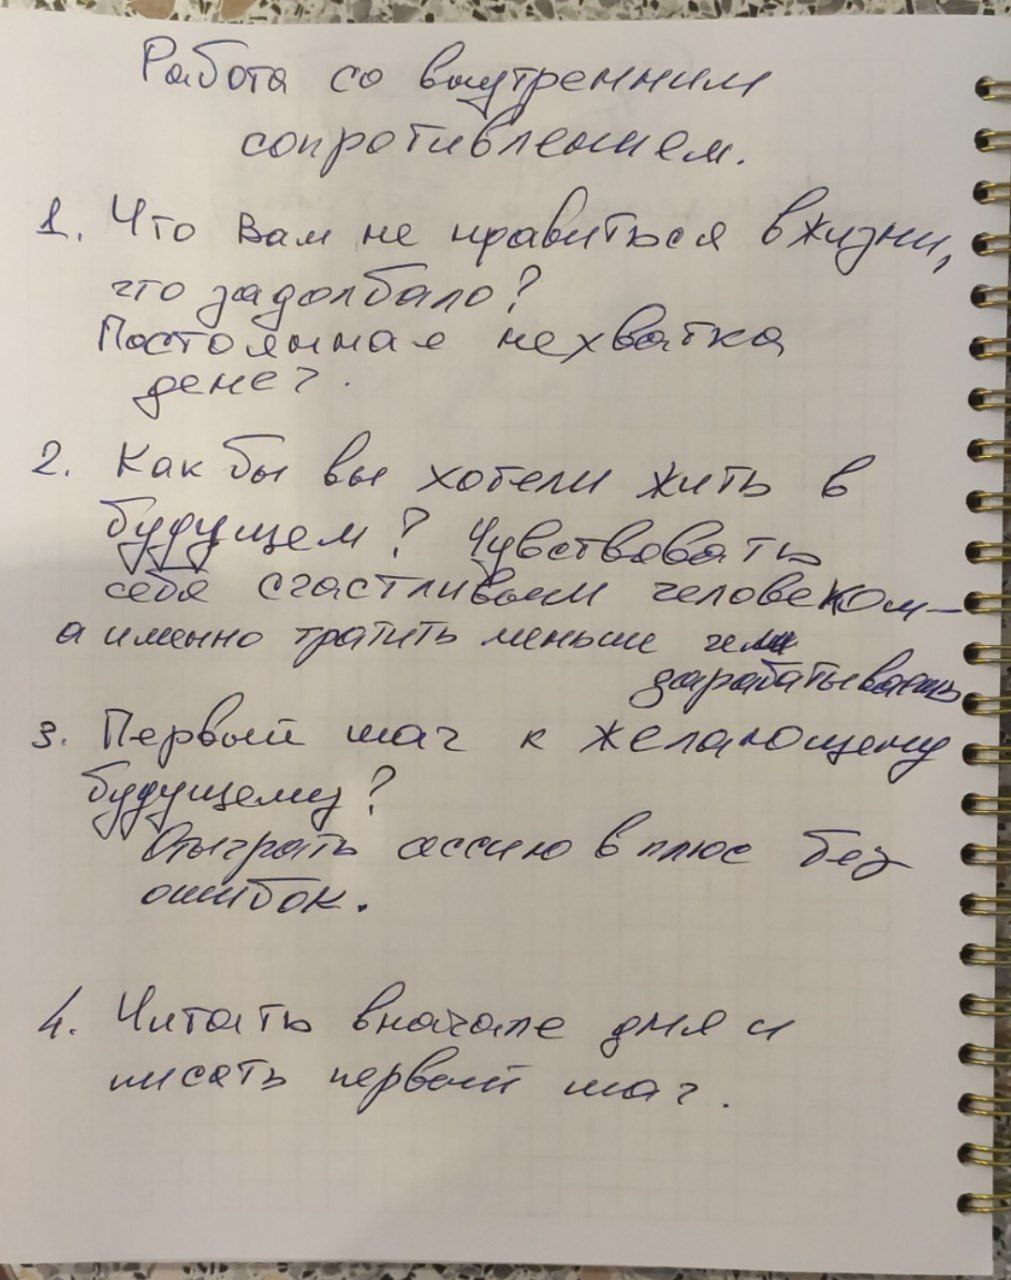 Работа со внутренним
сопротивлением.
1. Что Вам не нравиться в жизни,
что задолбало?
Постоянная нехватка
денег.
2. Как бы вы хотели жить в
будущем? Чувствовать
себя счастливым человеком-
а именно тратить меньше чем
зарабатываешь
3. Первый шаг к желающему
будущему?
Отыграть сессию в плюс без
ошибок.
4. Читать вначале дня и
писать первый шаг.